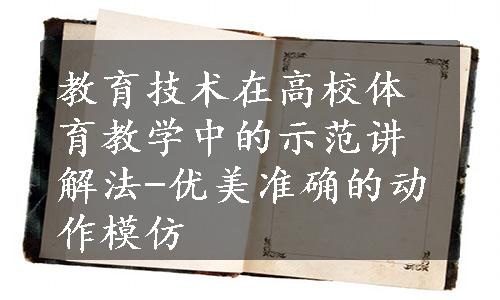 教育技术在高校体
育教学中的示范讲
解法-优美准确的动
作模仿